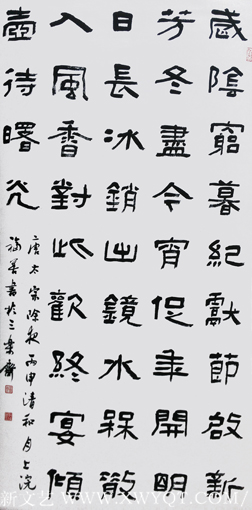 歲陰窮暮紀獻節啟新
芳冬盡今宵促年開明
日長冰銷出鏡水槑散
入風香對此歡終宴傾
壺待曙光
唐太宗除夜丙申清和月上浣
書於三樂齋
新文艺